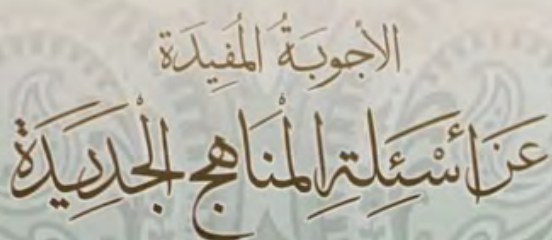 الأجوبَةُ المُفِيدَة
عَنْ أَسْئِلَةِ المَنَاهِجِ الجَدِيدَةِ